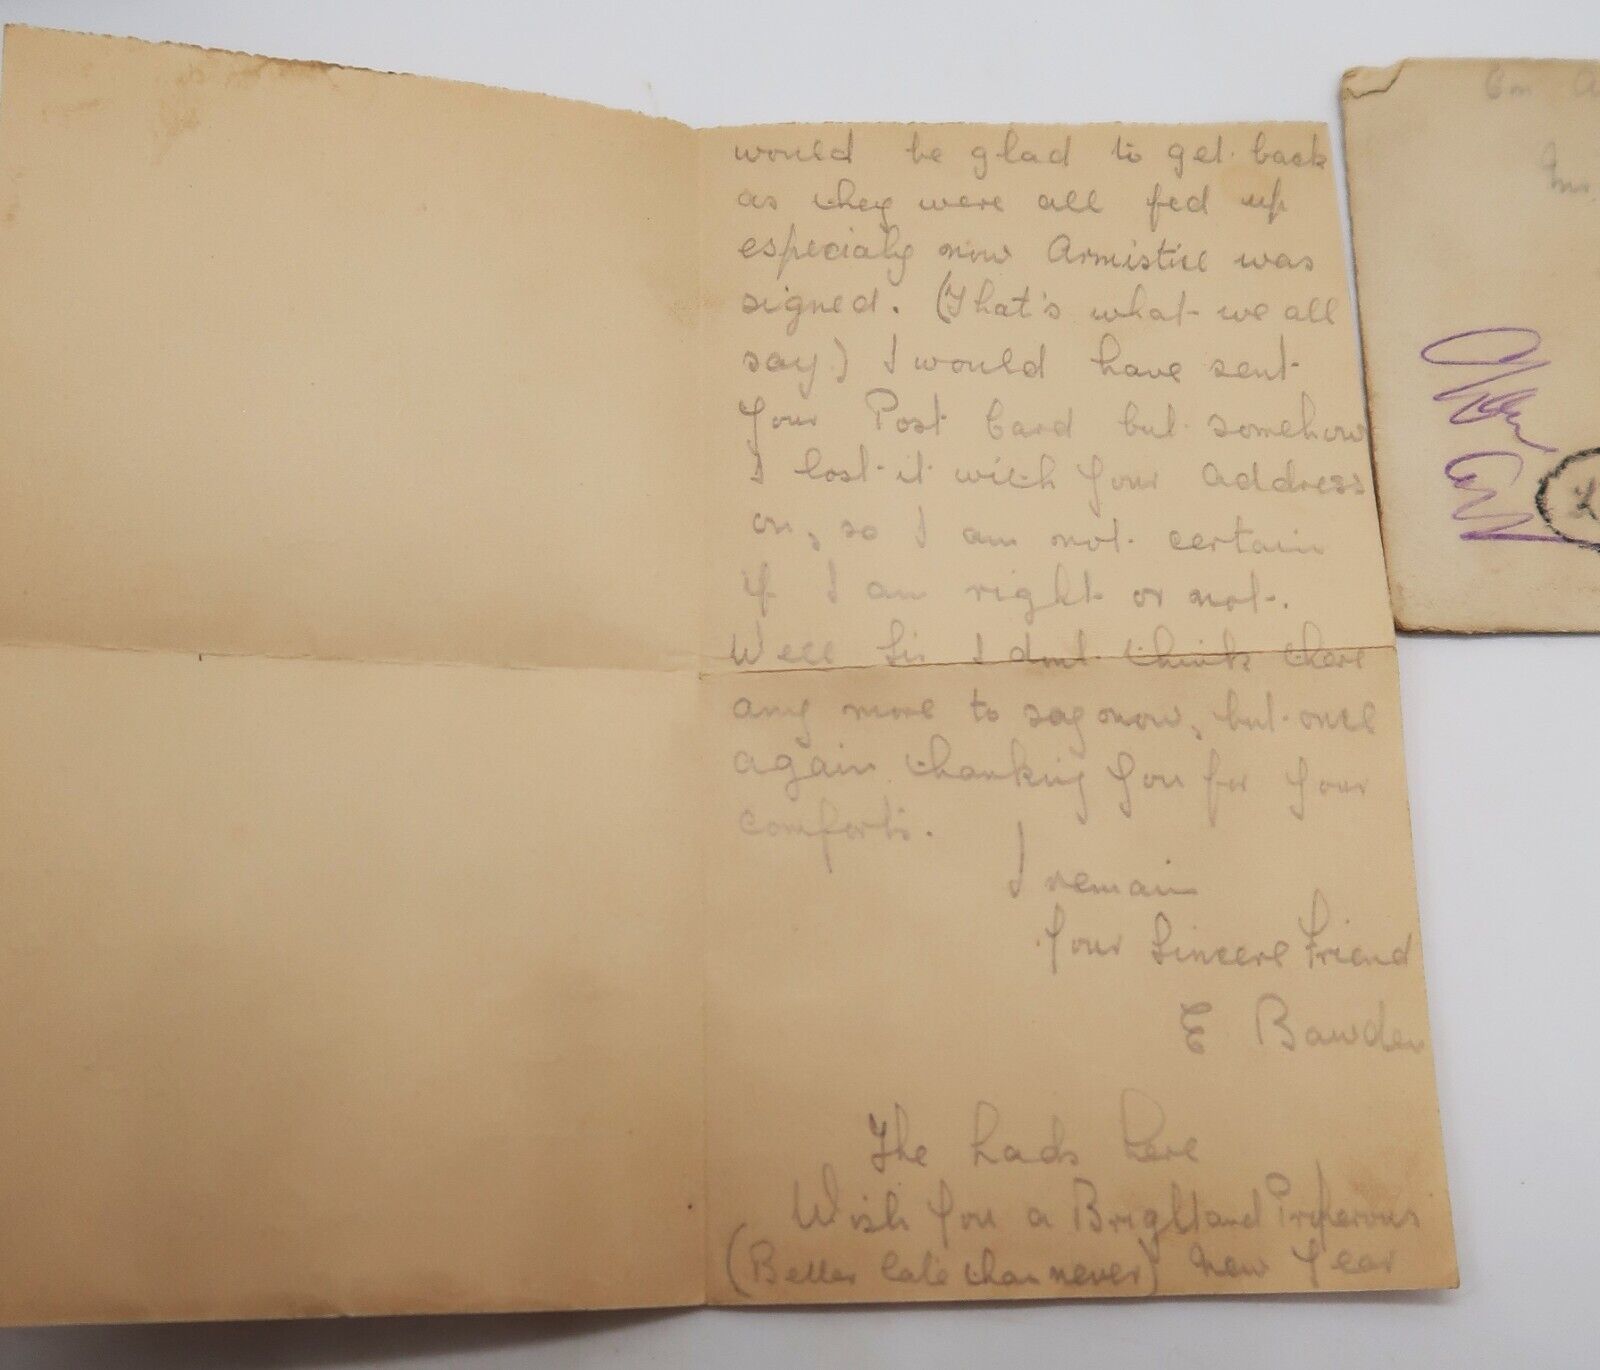 would be glad to get back
as they were all fed up
especialy now Armistice was
signed. (That's what we all
say.) I would have sent
your Post Card but somehow
I lost it with your address
on, so I am not certain
if I am right or not.
Well Sir I dont think there
any more to say now, but once
again thanking you for your
comforts.
I remain
Your Sincere Friend
E Bawden
The Lads here
Wish you a Bright and Properous
(Better late than never) New Year